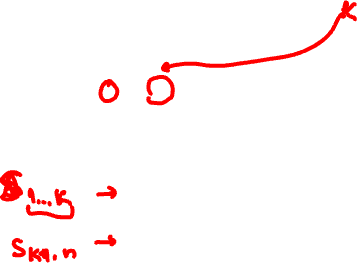 K
S 1...K →
S K+1.n →